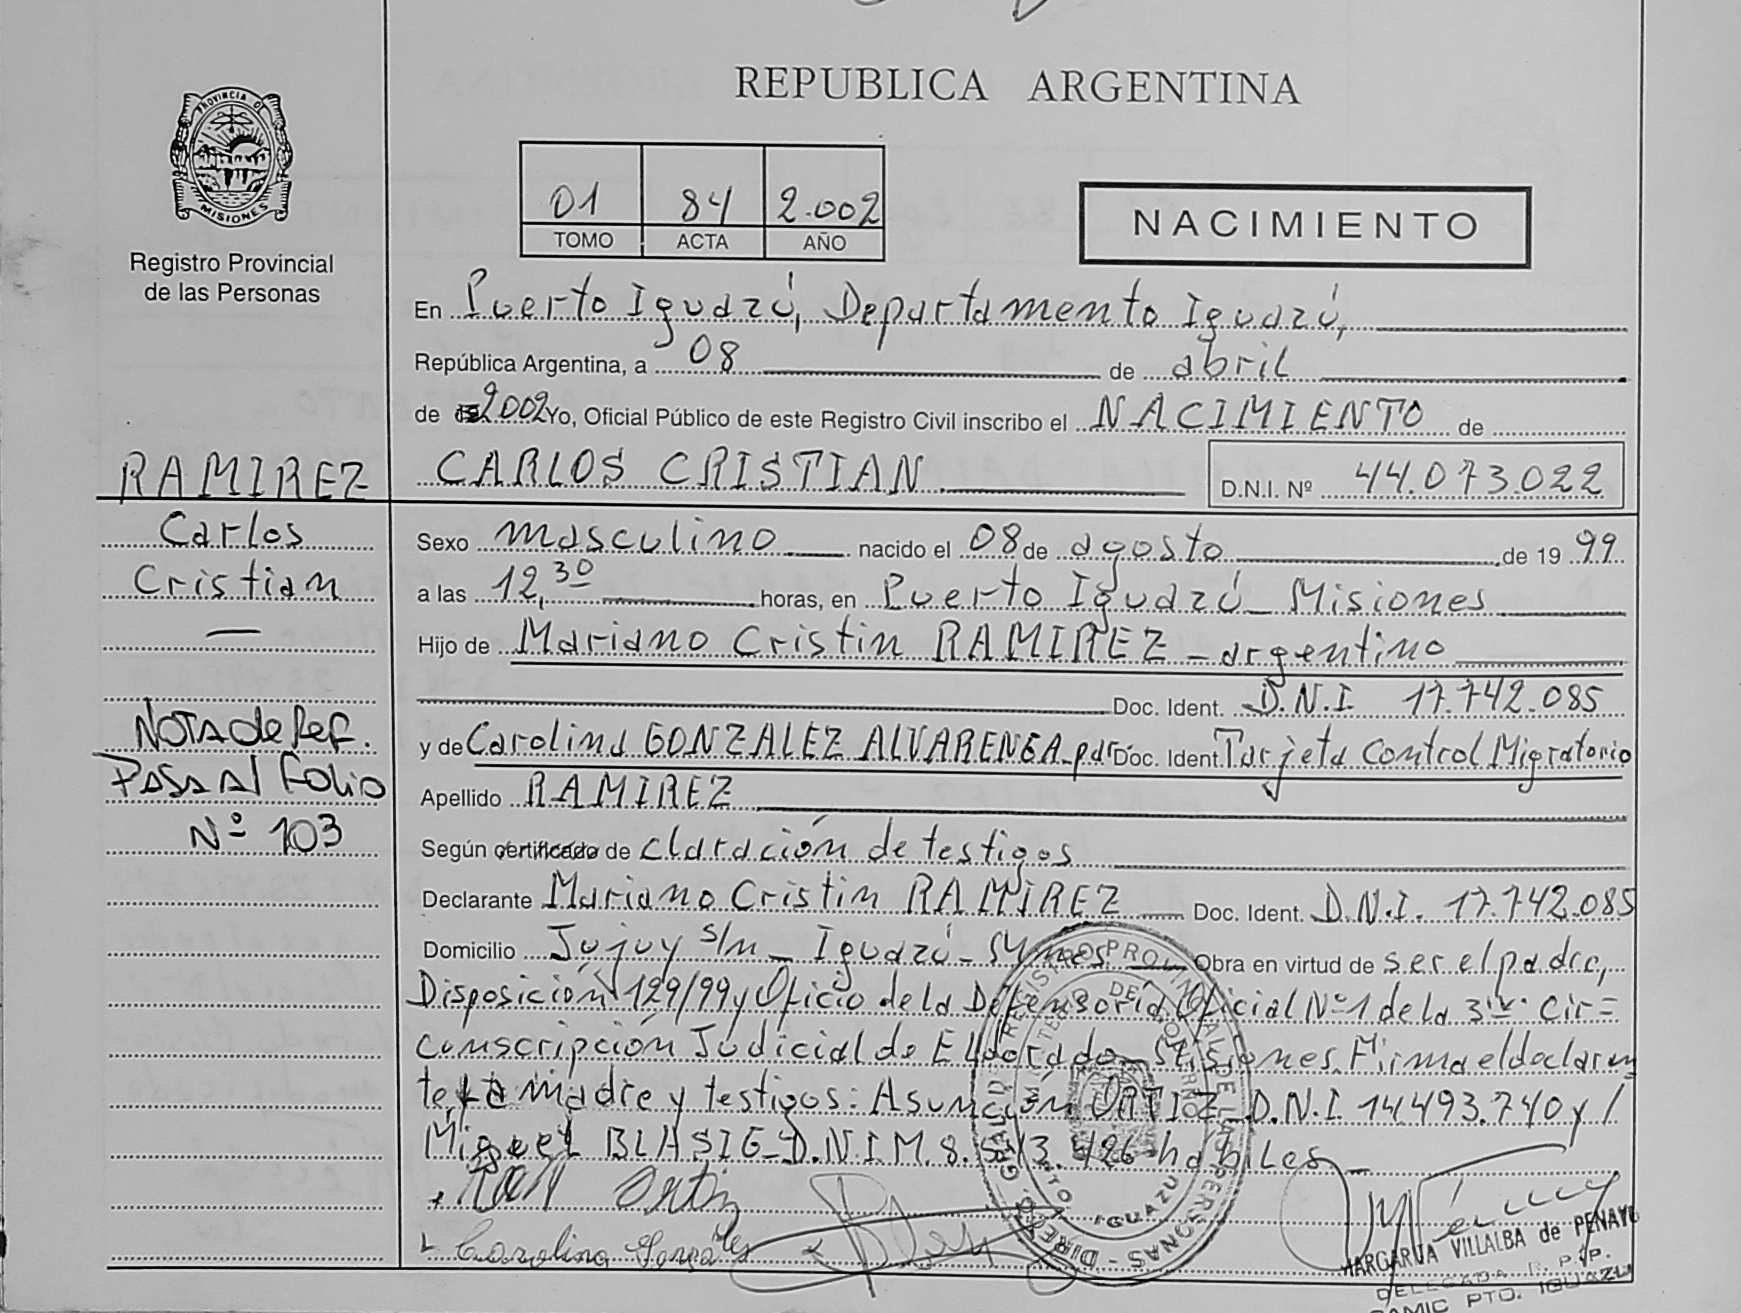 REPUBLICA ARGENTINA
PROVINCIA DE
MISIONES
Registro Provincial
de las Personas
01 84 2.002
TOMO ACTA AÑO
NACIMIENTO
En Puerto Iguazú, Departamento Iguazú,
República Argentina, a 08 de abril
de 2002 Yo, Oficial Público de este Registro Civil inscribo el NACIMIENTO de
RAMIREZ
Carlos
Cristian
—
NOTA de Ref.
PASA Al Folio
Nº 103
CARLOS CRISTIAN D.N.I. Nº 44.073.022
Sexo masculino nacido el 08 de agosto de 1999
a las 12,30 horas, en Puerto Iguazú - Misiones
Hijo de Mariano Cristin RAMIREZ - argentino
Doc. Ident. D.N.I 17.742.085
y de Carolina GONZALEZ ALVARENGA - par- Doc. Ident. Tarjeta Control Migratorio
Apellido RAMIREZ
Según certificado de claración de testigos
Declarante Mariano Cristin RAMIREZ Doc. Ident. D.N.I. 17.742.085
Domicilio Jujuy s/n - Iguazú - Obra en virtud de ser el padre,
Disposición 129/99 y Oficio de la Defensoría Oficial Nº 1 de la 3ra. Cir=
cunscripción Judicial de Eldorado - Misiones. Firma el declaran
te, la madre y testigos: Asunción ORTIZ - D.N.I. 14.493.740 y /
Miguel BLASIG - D.N.I M. 8.543.426 hábiles -
Ortiz
Carolina Gonzales
REGISTRO PROVINCIAL DE LAS PERSONAS - DIREC. GRAL.
PTO. IGUAZU
MARGARITA VILLALBA de PENAYO
DELEGADA R. P. P.
PTO. IGUAZU